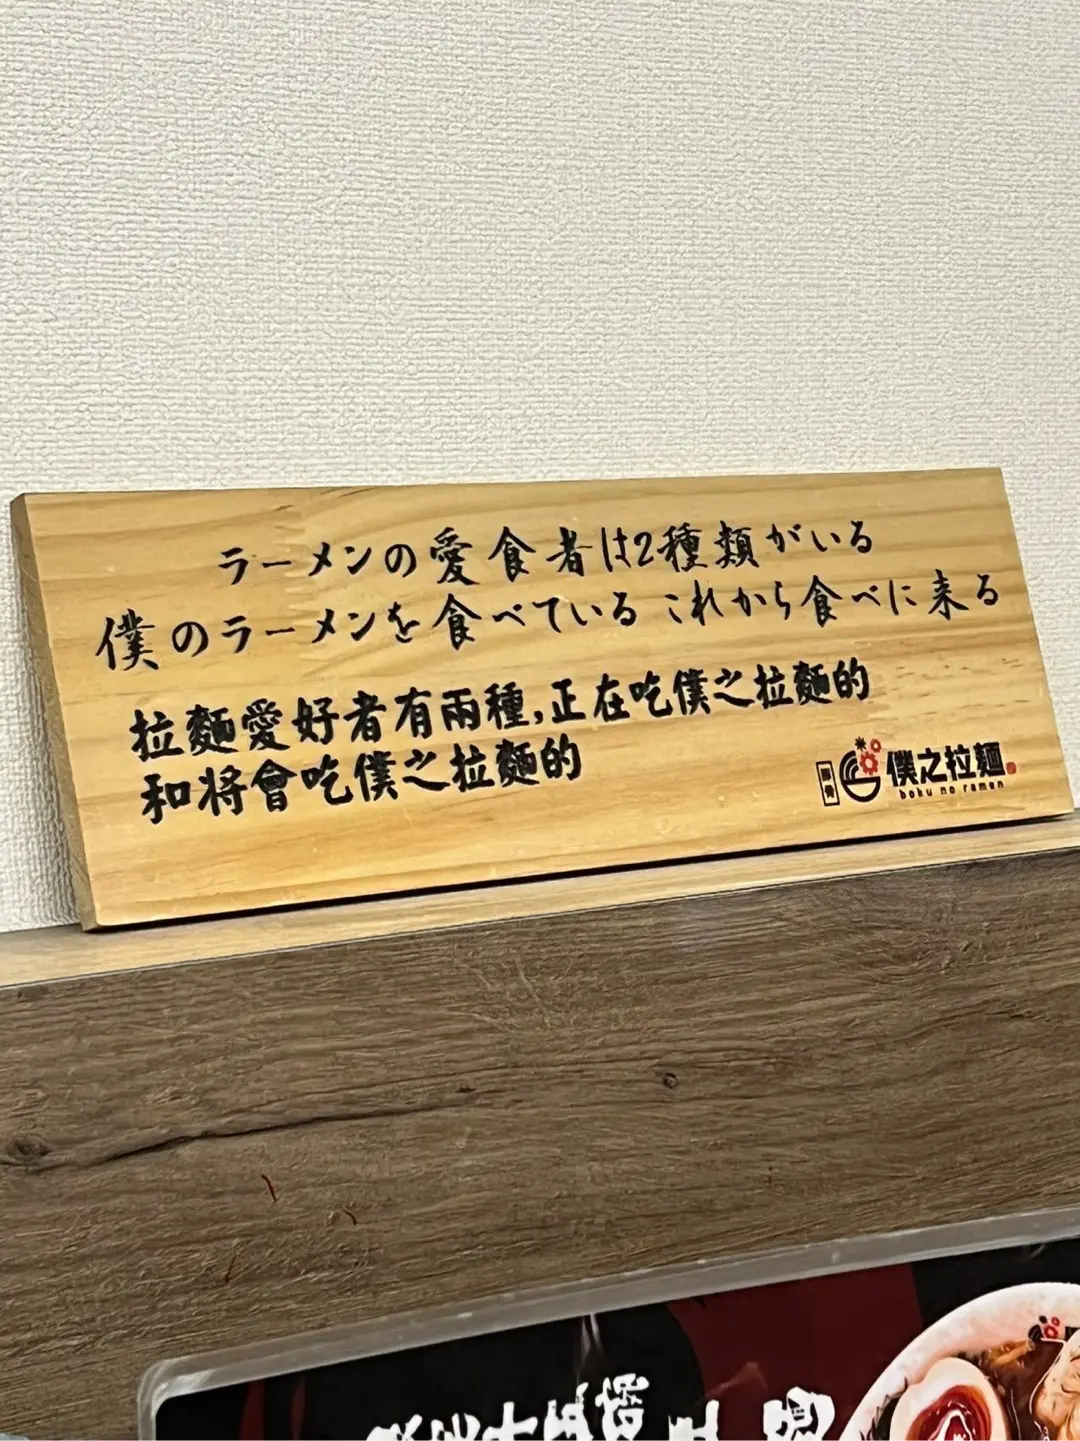 ラーメンの愛食者は2種類がいる
僕のラーメンを食べている これから食べに来る
拉麵愛好者有兩種,正在吃僕之拉麵的
和將會吃僕之拉麵的
豚骨
僕之拉麵
boku no ramen